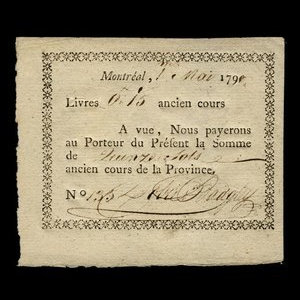 Montréal, 1 Mai 1790
Livres 0.15 ancien cours
A vue, Nous payerons
au Porteur du Présent la Somme
de Quinze Sols
ancien cours de la Province.
No 135